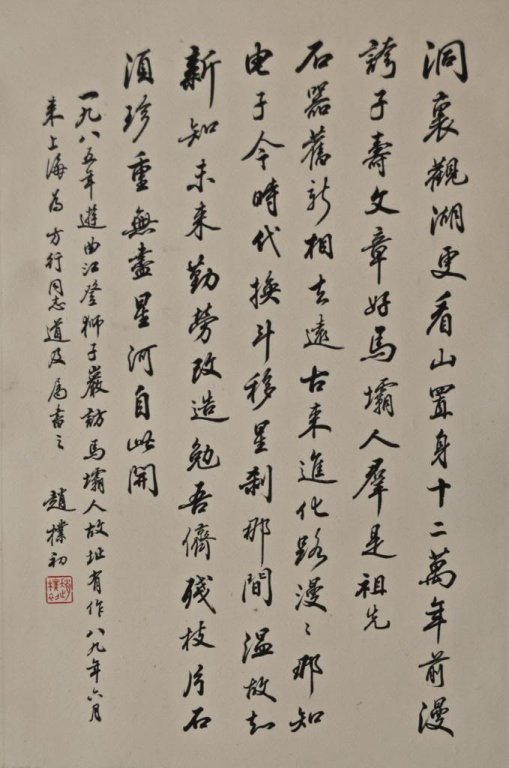 洞裏觀湖更看山置身十二萬年前漫
誇子壽文章好馬壩人羣是祖先
石器舊新相去遠古来進化路漫〻那知
电子今時代換斗移星刹那間溫故知
新知未来勤勞改造勉吾儕殘枝片石
須珍重無盡星河自此開
一九八五年遊曲江登獅子巖訪馬壩人故址有作八九年六月
来上海为方行同志道及属書之 趙樸初